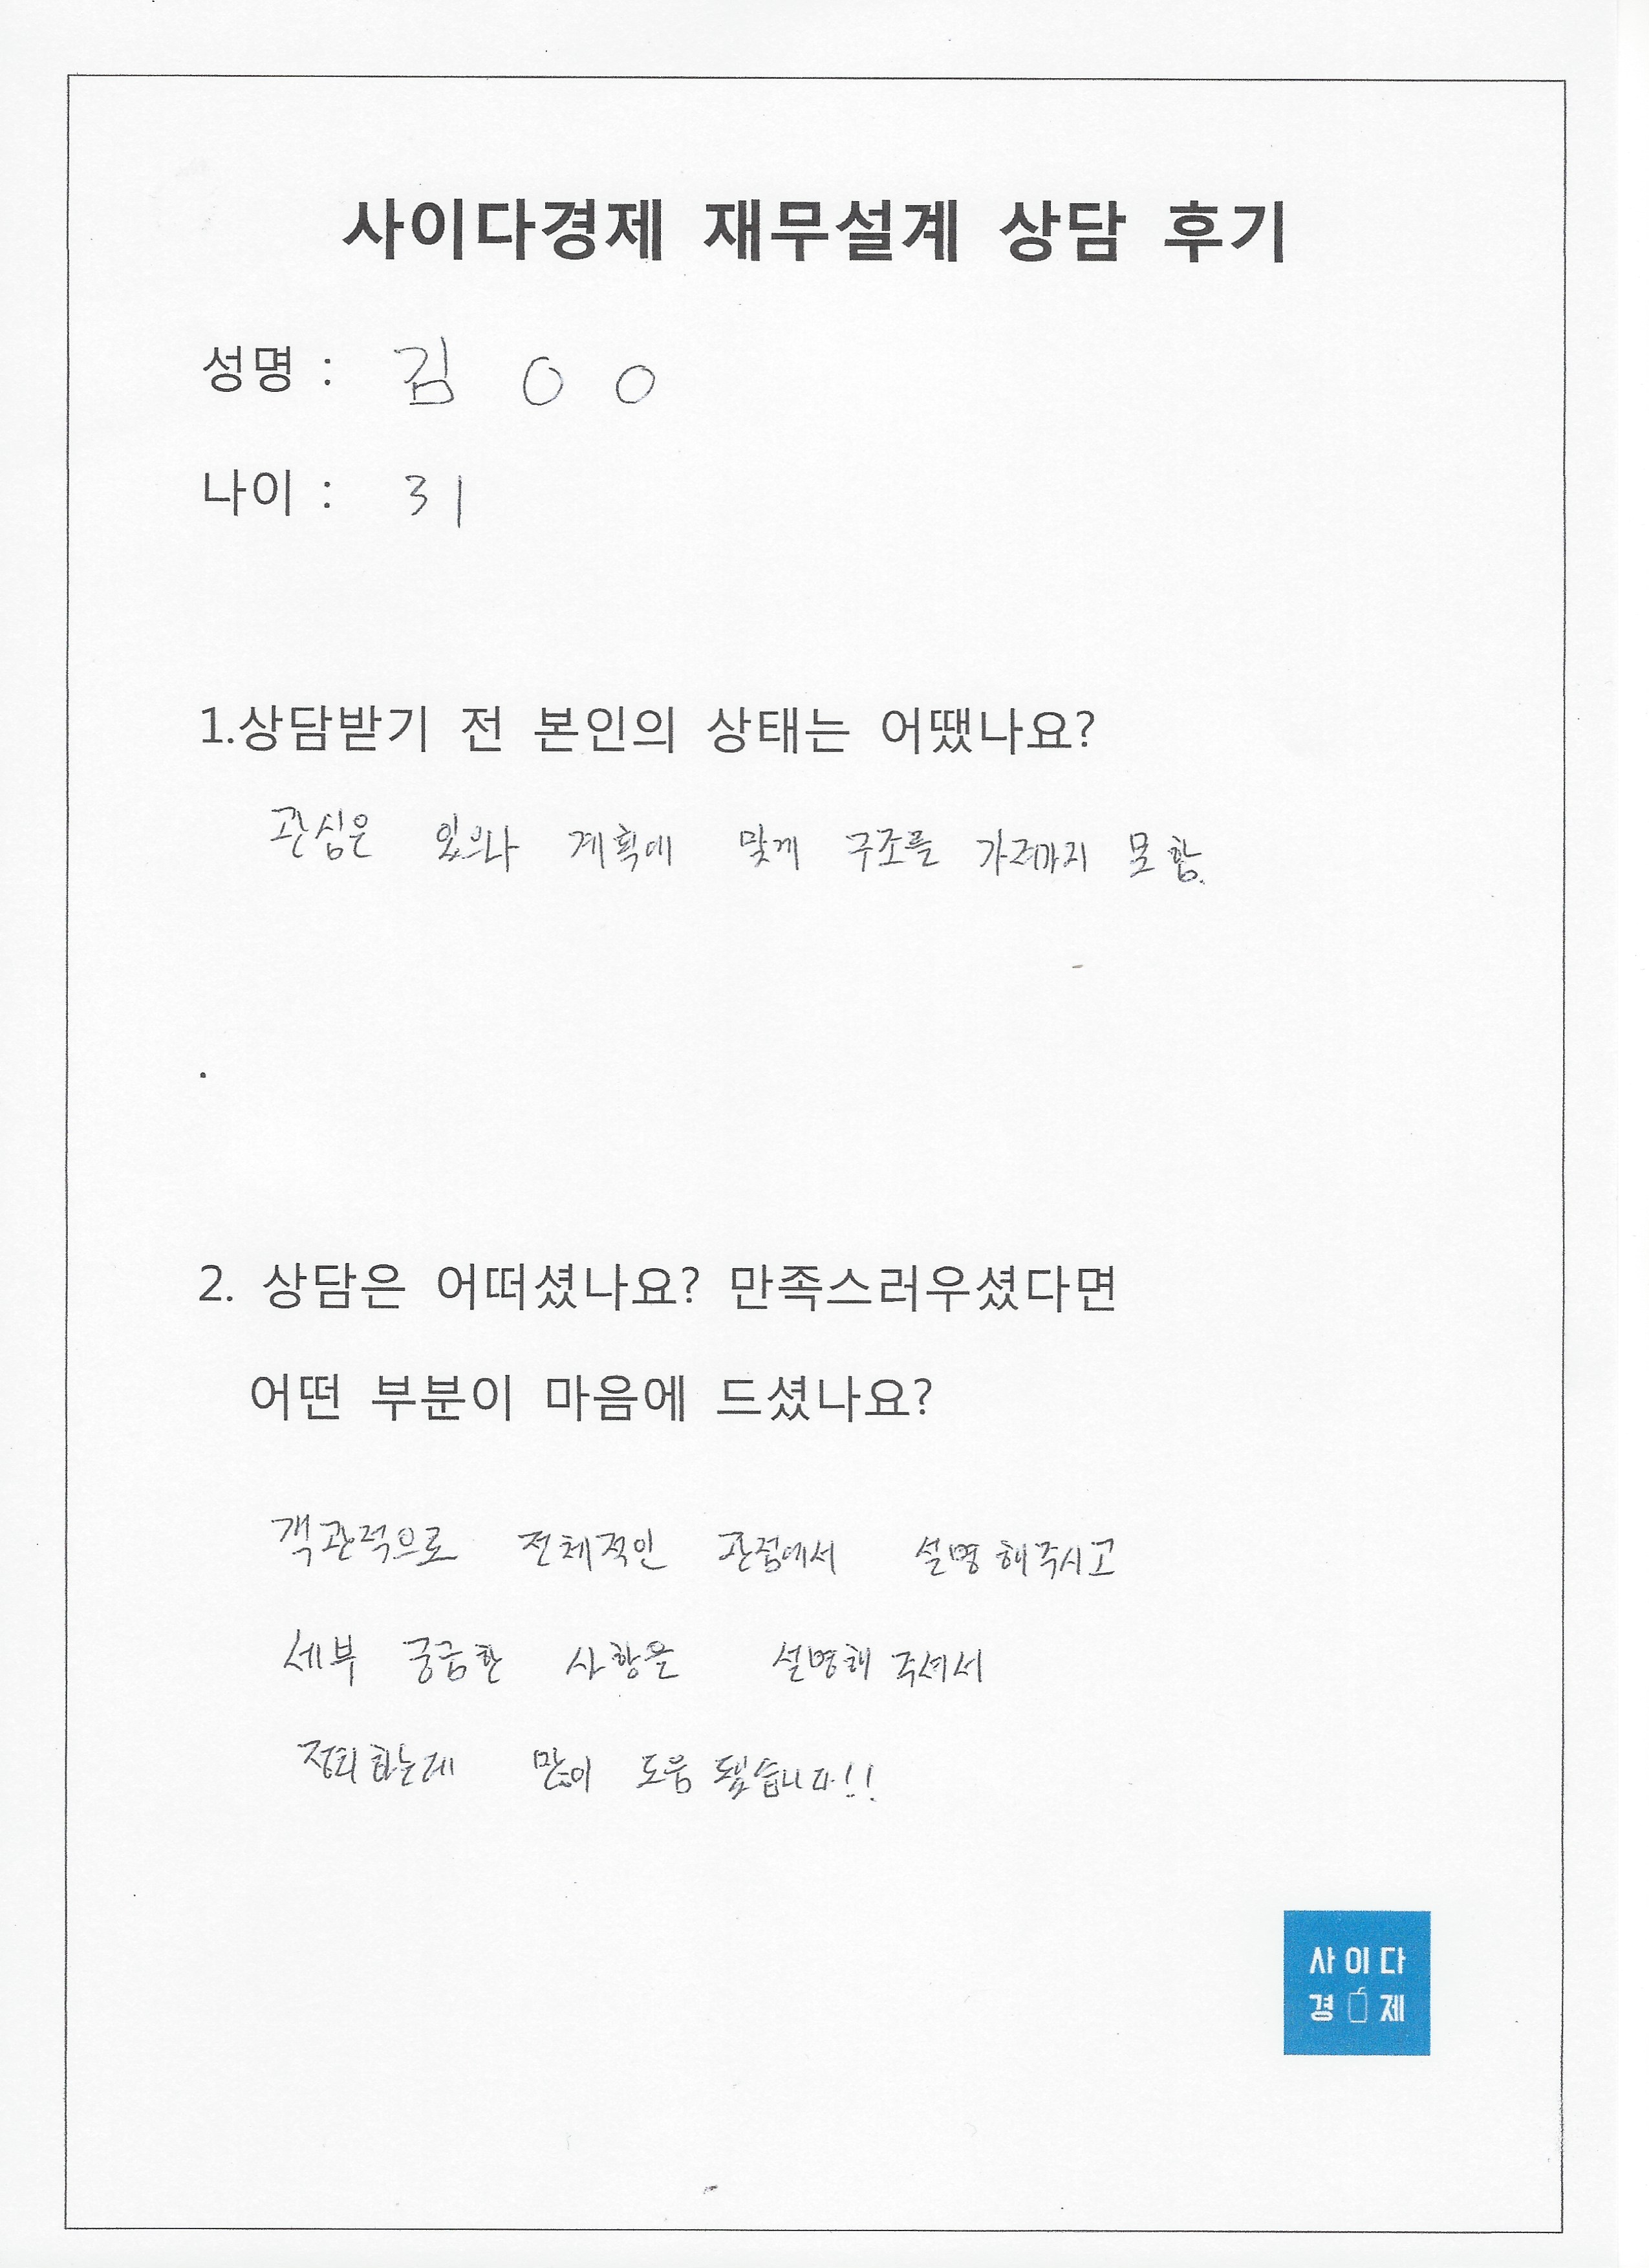 사이다경제 재무설계 상담 후기
성명 : 김 O O
나이 : 31
1.상담받기 전 본인의 상태는 어땠나요?
관심은 있으나 계획에 맞게 구조를 가져가지 못함.
2. 상담은 어떠셨나요? 만족스러우셨다면
어떤 부분이 마음에 드셨나요?
객관적으로 전체적인 관점에서 설명해주시고
세부 궁금한 사항을 설명해 주셔서
정리하는데 많이 도움 됬습니다!!
사이다
경제